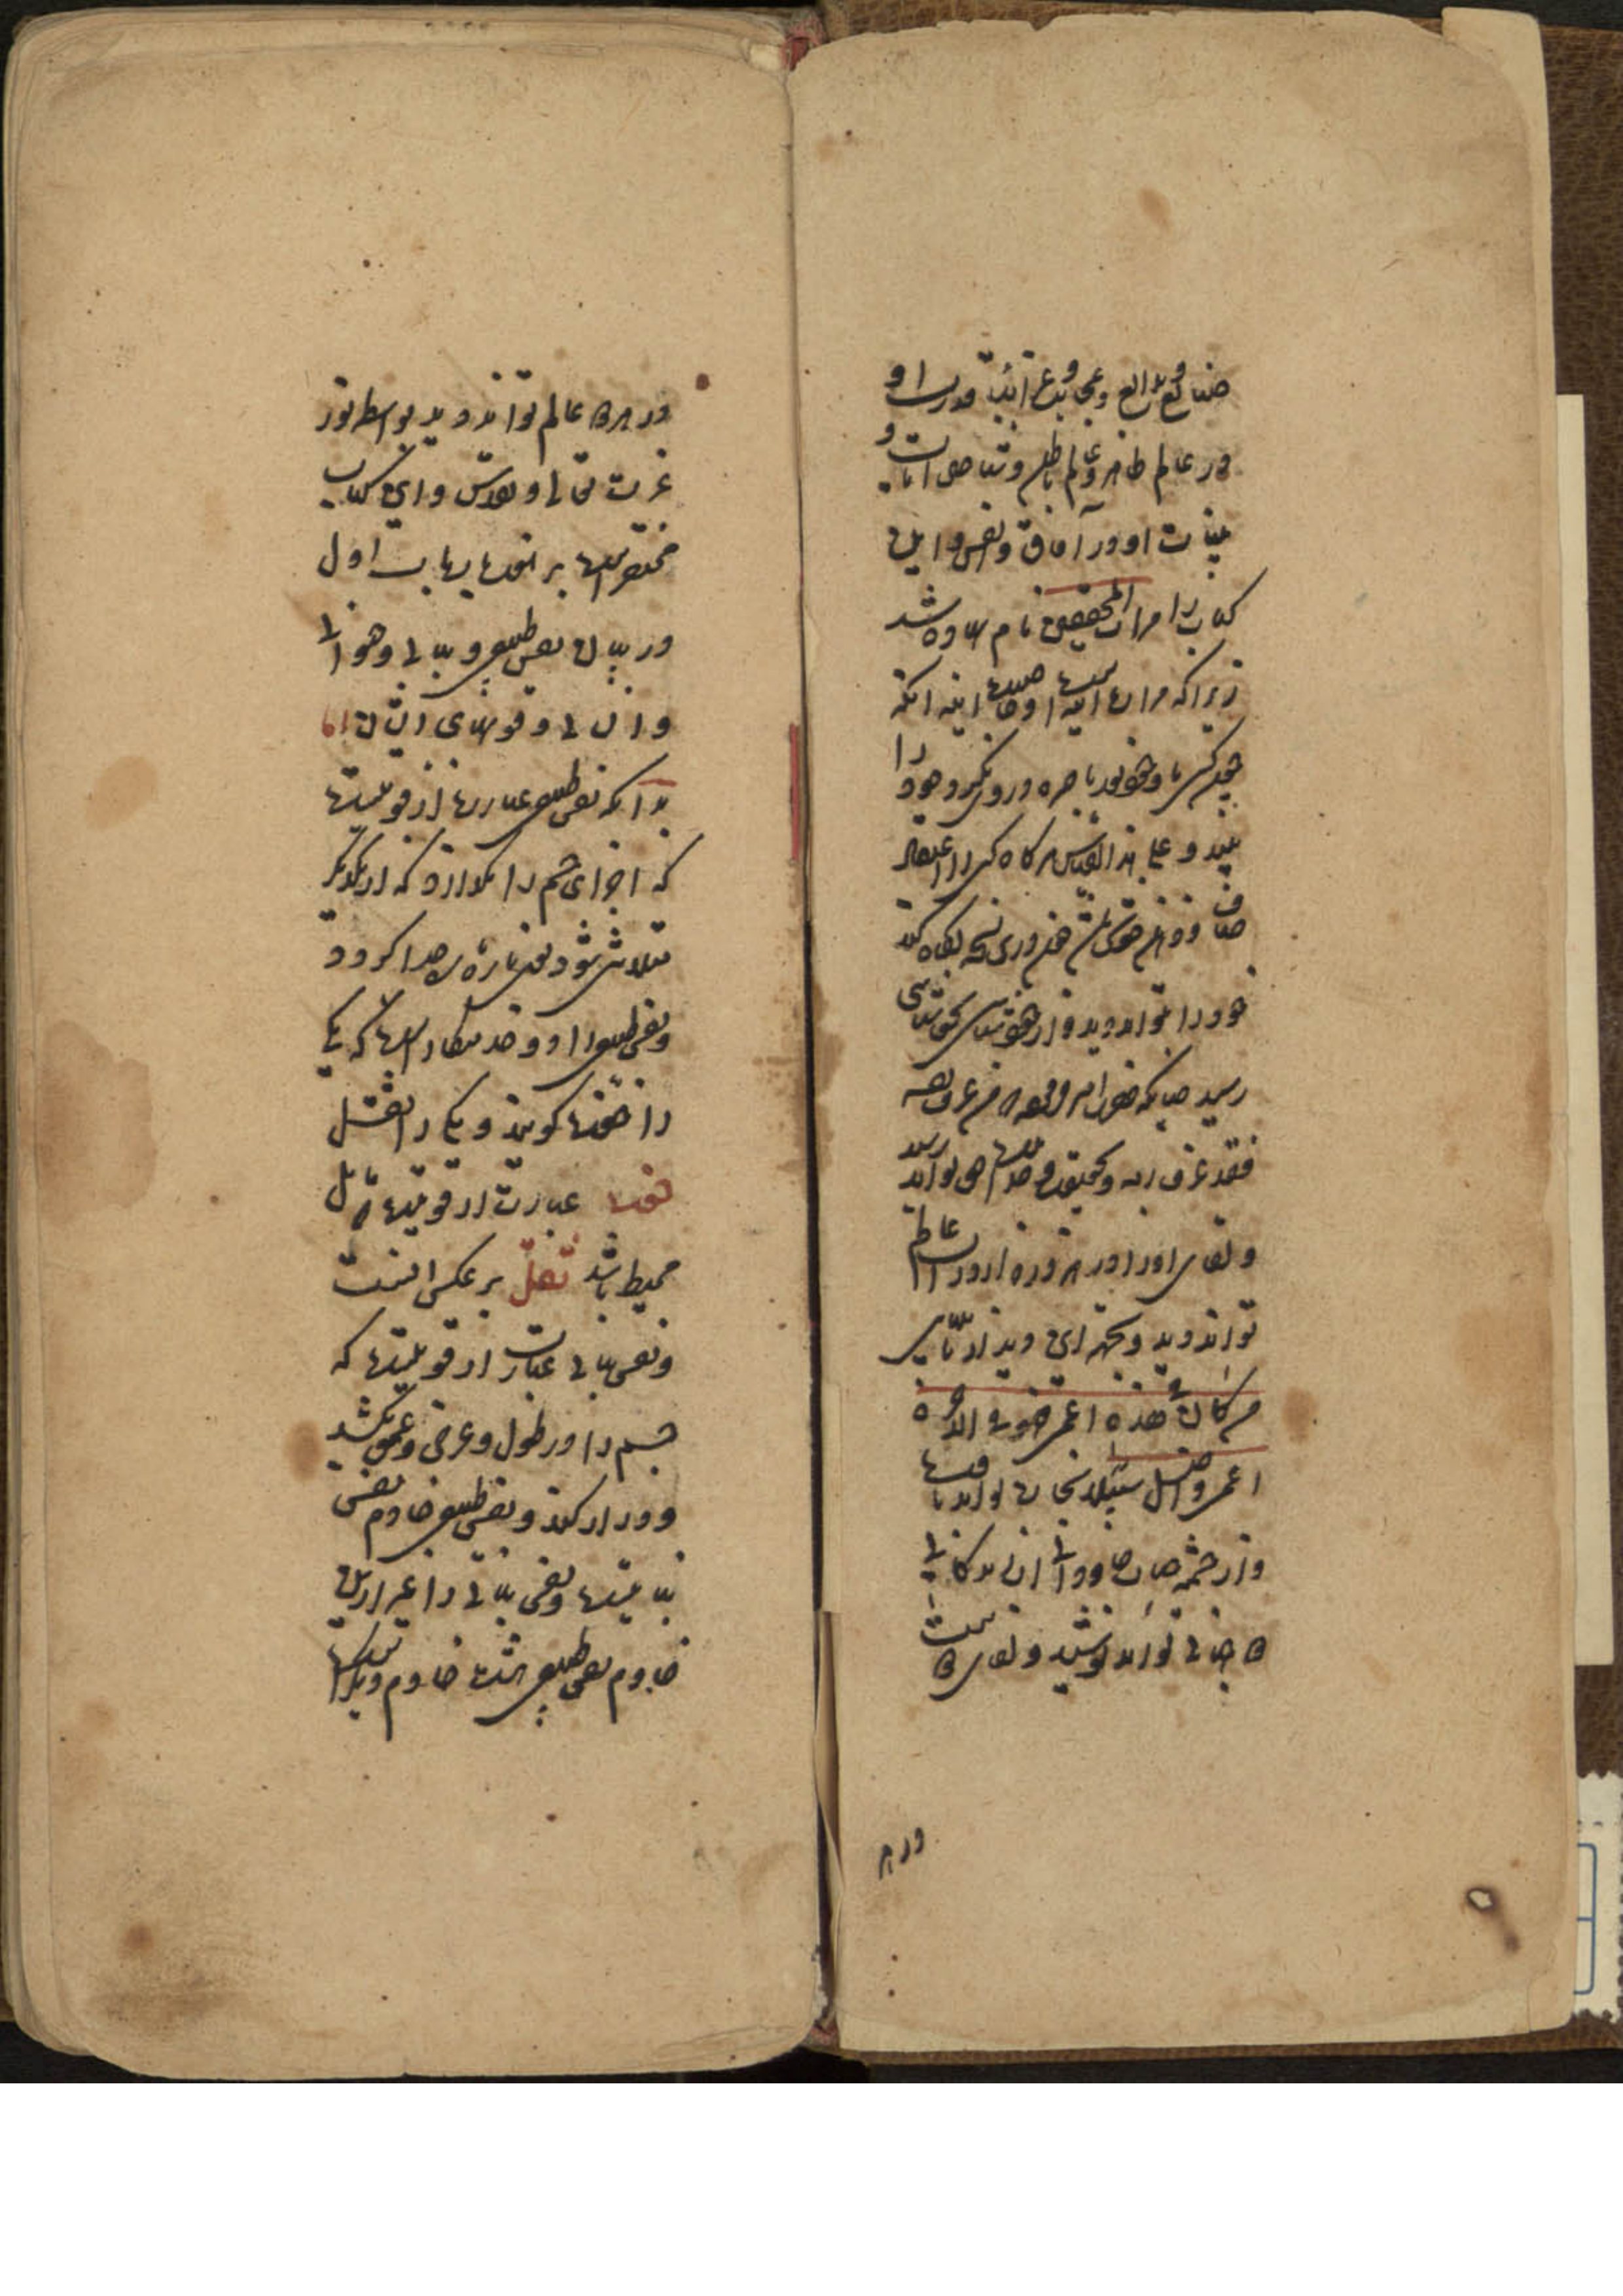 صنایع و بدایع و عجایب و غرایب قدرت او
در عالم ظاهر و عالم باطن و تفاصیل آیات و
بینات او در آفاق و انفس و این
کتاب را مرآت المحققین نام نهاده شد
زیرا که مرآت آینه است و خاصیت آینه آنکه
چون کسی با وجود نور باصره درو نگرد خود را
بیند و علی هذا القیاس هر گاه کسی را اعتقاد
صاف و ذهن خوش باشد درین نسخه نگاه کند
خود را تواند دید و از خودشناسی بخداشناسی
رسید چنانکه حضرت امیر فرموده من عرف نفسه
فقد عرف ربه و بحقیقت وحدت حق تواند رسید
و لقای او را در هر ذره از ذرات عالم
تواند دید و بجهة این دید از شناسایی
من کان فی هذه اعمی فهو فی الآخرة
اعمی و اضل سبیلا نجات تواند یافت
و از چشمه حیات جاودانی آب زندگانی
جانی تواند نوشید و لقای
در هر
در هر عالم تواند دید بواسطه نور
عزت تعالی و تقدس و این کتاب
مختصر است بر هفت باب باب اول
در بیان نفس طبیعی و نباتی و حیوانی
و انسانی و قوتهای ایشان اما
بدانکه نفس طبیعی عبارت از قوتیست
که اجزای جسم را نگذارد که از یکدیگر
متلاشی شود یعنی پاره پاره جدا گردد
و نفس طبیعی را دو خدمتکار است که یکی
را خفت گویند و یکی را ثقل
خفت عبارت از قوتیست مایل
محیط باشد ثقل بر عکس اینست
و نفس نباتی عبارت از قوتیست که
جسم را در طول و عرض و عمق بکشد
و دراز کند و نفس طبیعی خادم نفس
نباتیست و نفس نباتی را غیر ازین
خادم نفس طبیعی هشت خادم دیگر است